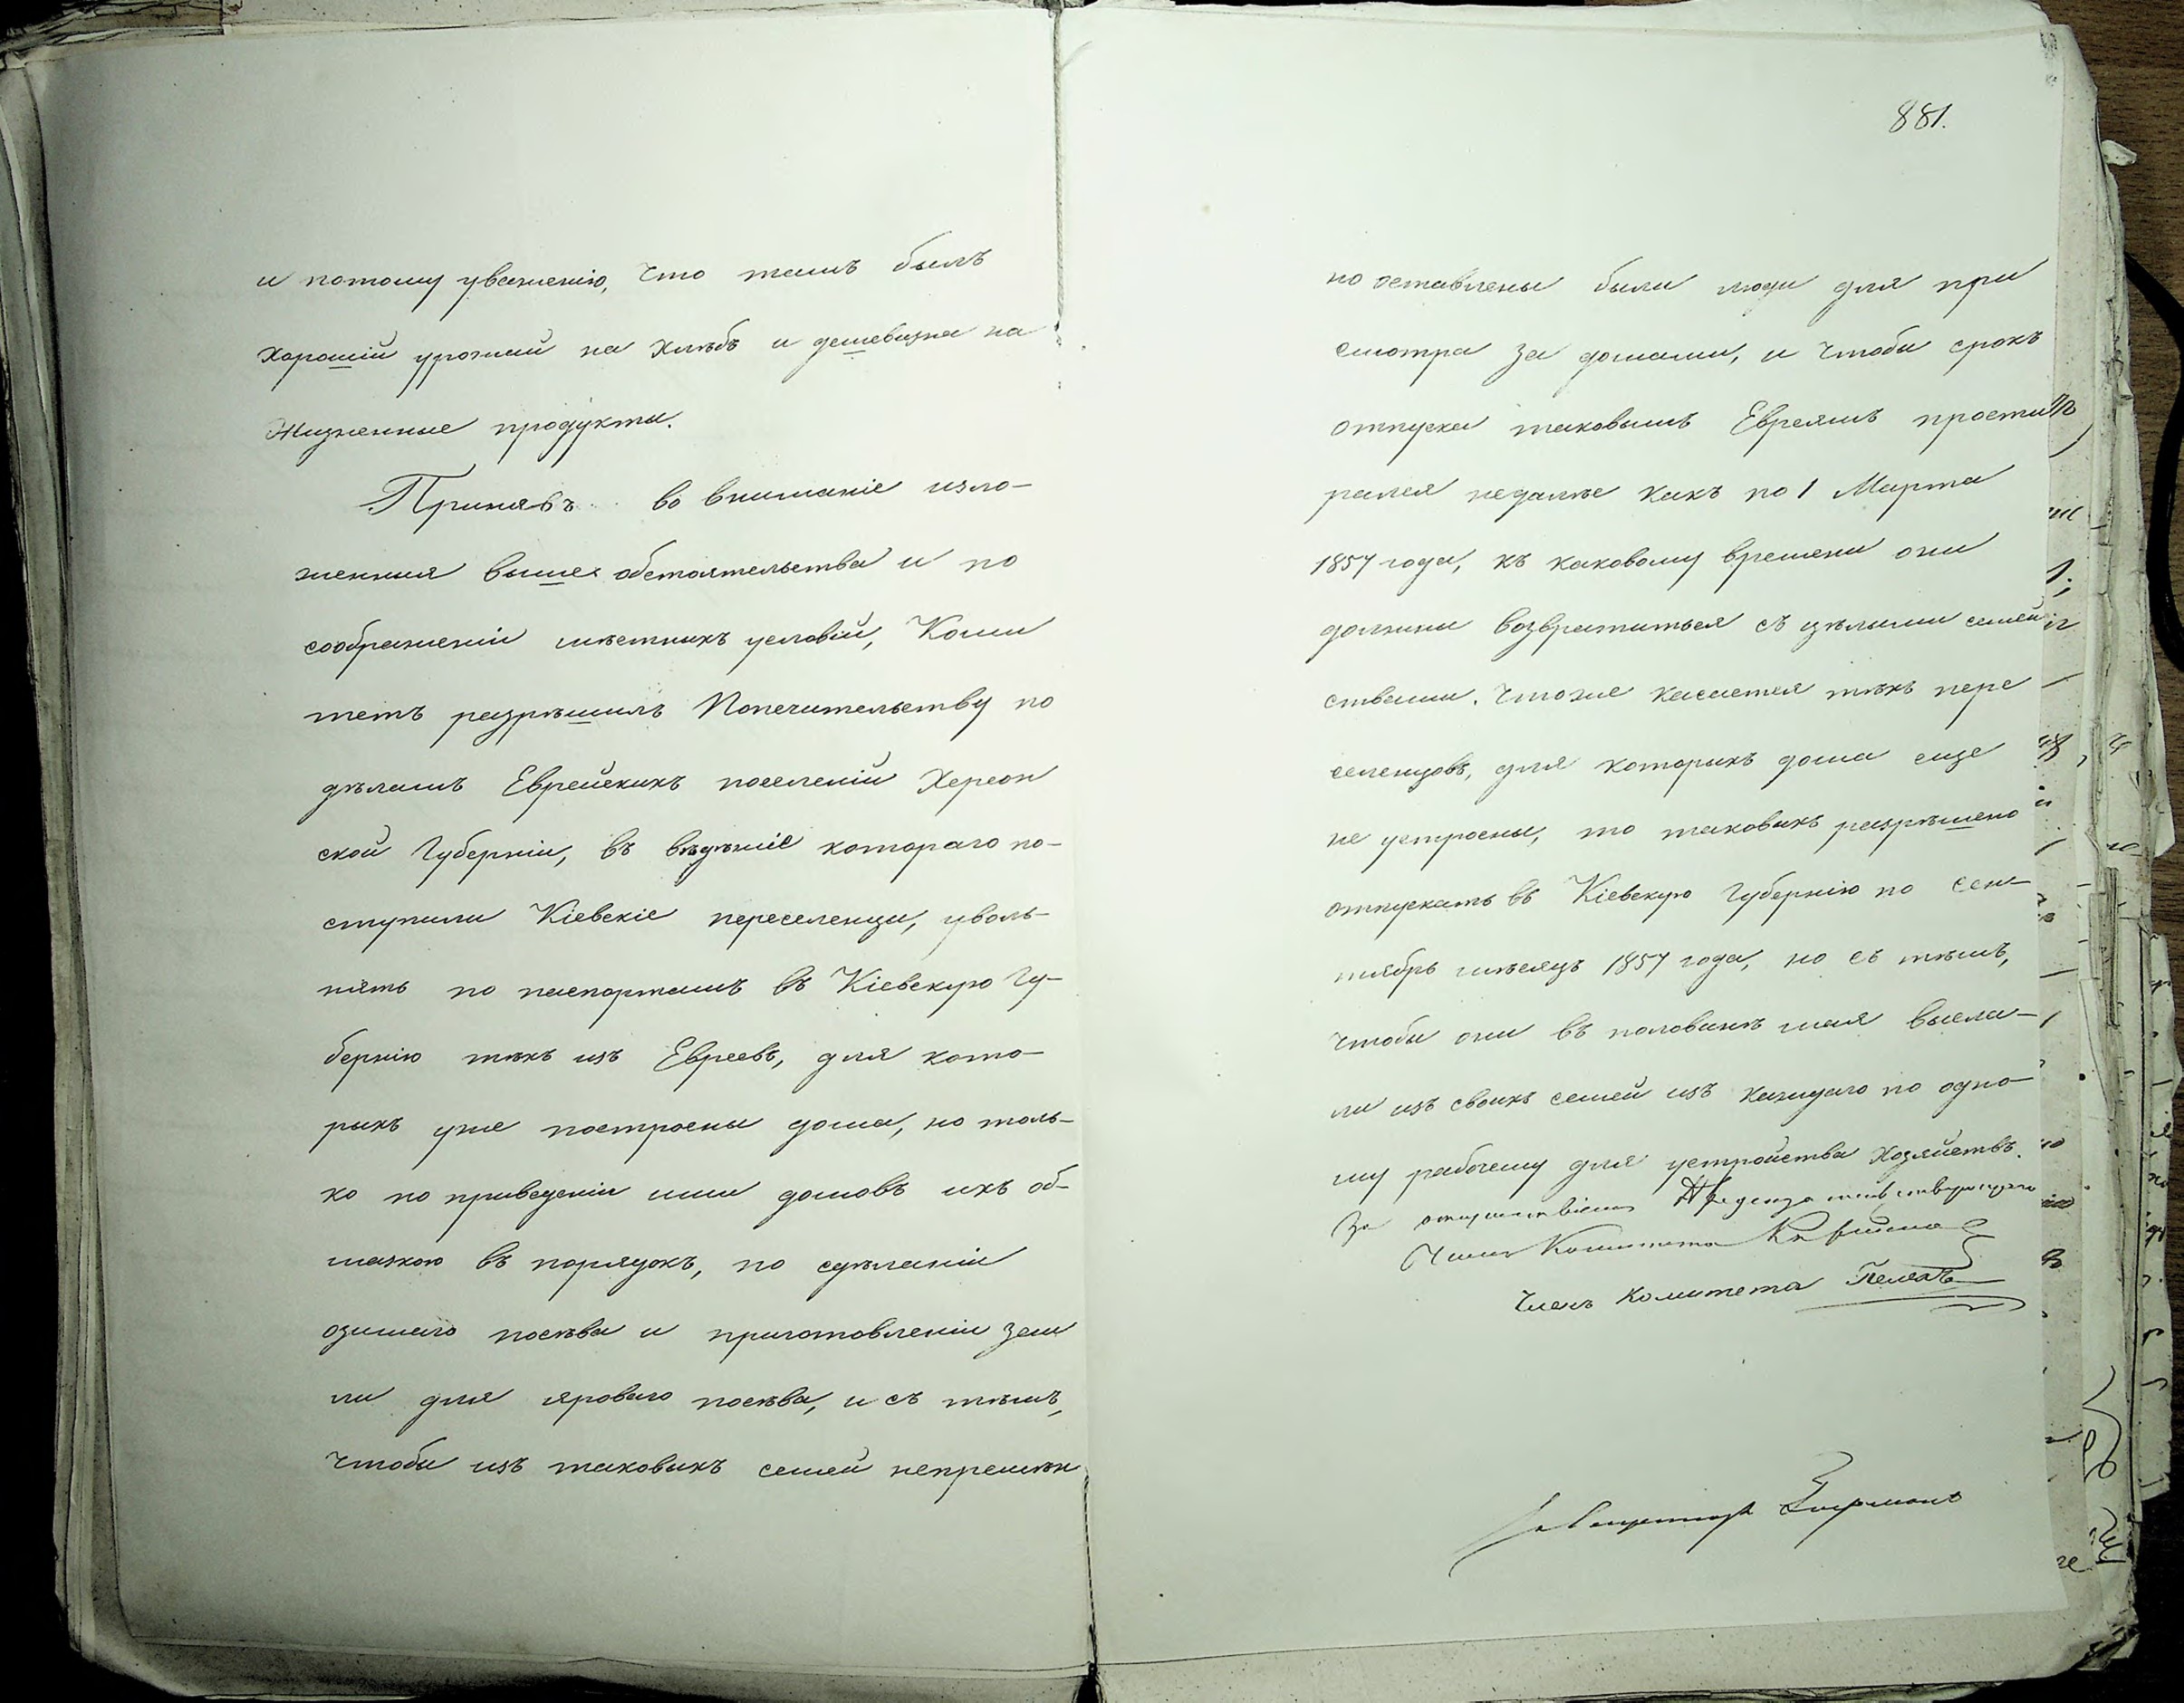 и потому уваженію, что тамъ былъ
хорошій урожай на хлѣбъ и дешевизна на
жизненные продукты.
Принявъ во вниманіе изло-
женныя выше обстоятельства и по
соображеніи мѣстныхъ условій, Коми
тетъ разрѣшилъ Попечительству по
дѣламъ Еврейскихъ поселеній Херсон
ской Губерніи, въ вѣдѣніе котораго по-
ступили Кіевскіе переселенцы, уволь-
нять по паспортамъ въ Кіевскую Гу-
бернію тѣхъ изъ Евреевъ, для кото-
рыхъ уже построены дома, но толь-
ко по приведеніи ими домовъ ихъ об-
мазкою въ порядокъ, по сдѣланіи
озимаго посѣва и приготовленіи зем
ли для яроваго посѣва, и съ тѣмъ,
чтобы изъ таковыхъ семей непремѣн
881.
но оставлены были люди для при
смотра за домами, и чтобы срокъ
отпуска таковымъ Евреямъ прости
рался недалѣе какъ по 1 Марта
1857 года, къ каковому времени они
должны возвратиться съ цѣлыми семей
ствами. Чтоже касается тѣхъ пере
селенцовъ, для которыхъ дома еще
не устроены, то таковыхъ разрѣшено
отпускать въ Кіевскую Губернію по сен-
тябрь мѣсяцъ 1857 года, но съ тѣмъ,
чтобы они въ половинѣ мая высла-
ли изъ своихъ семей изъ каждаго по одно-
му рабочему для устройства хозяйствъ.
За отсутствіемъ Предсѣдательствующаго
Членъ Комитета
Членъ Комитета